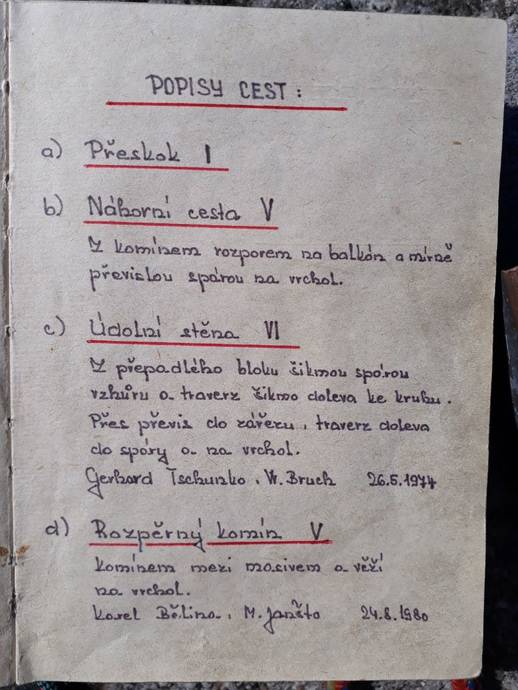 POPISY CEST :
a) Přeskok I
b) Náhorní cesta V
Z komínem rozporem na balkón a mírně
převislou spárou na vrchol.
c) Údolní stěna VI
Z přepadlého bloku šikmou spárou
vzhůru a traverz šikmo doleva ke kruhu.
Přes převis do zářezu, traverz doleva
do spáry a na vrchol.
Gerhard Tschunko, W. Bruch 26.5.1974
d) Rozpěrný komín V
komínem mezi masivem a věží
na vrchol.
Karel Bělina, M. Janšto 24.8.1980